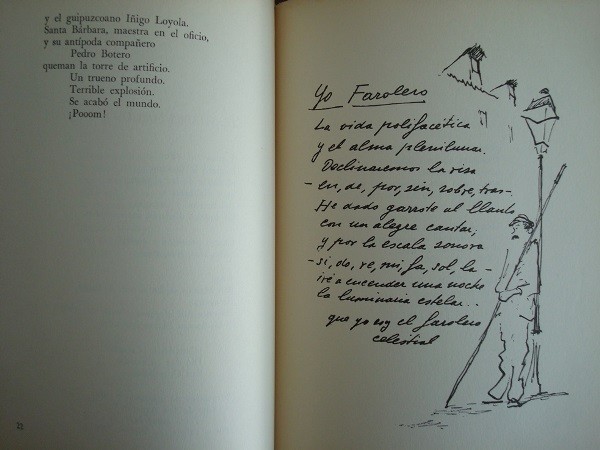 y el guipuzcoano Iñigo Loyola.
Santa Bárbara, maestra en el oficio,
y su antípoda compañero
Pedro Botero
queman la torre de artificio.
Un trueno profundo.
Terrible explosión.
Se acabó el mundo.
¡Pooom!
22
Yo Farolero
La vida polifacética
y el alma plenilunar.
Declinaremos la risa
- en, de, por, sin, sobre, tras-
He dado garrote al llanto
con un alegre cantar;
y por la escala sonora
- si, do, re, mi, fa, sol, la -
iré a encender una noche
la luminaria estelar..
que yo soy el farolero
celestial